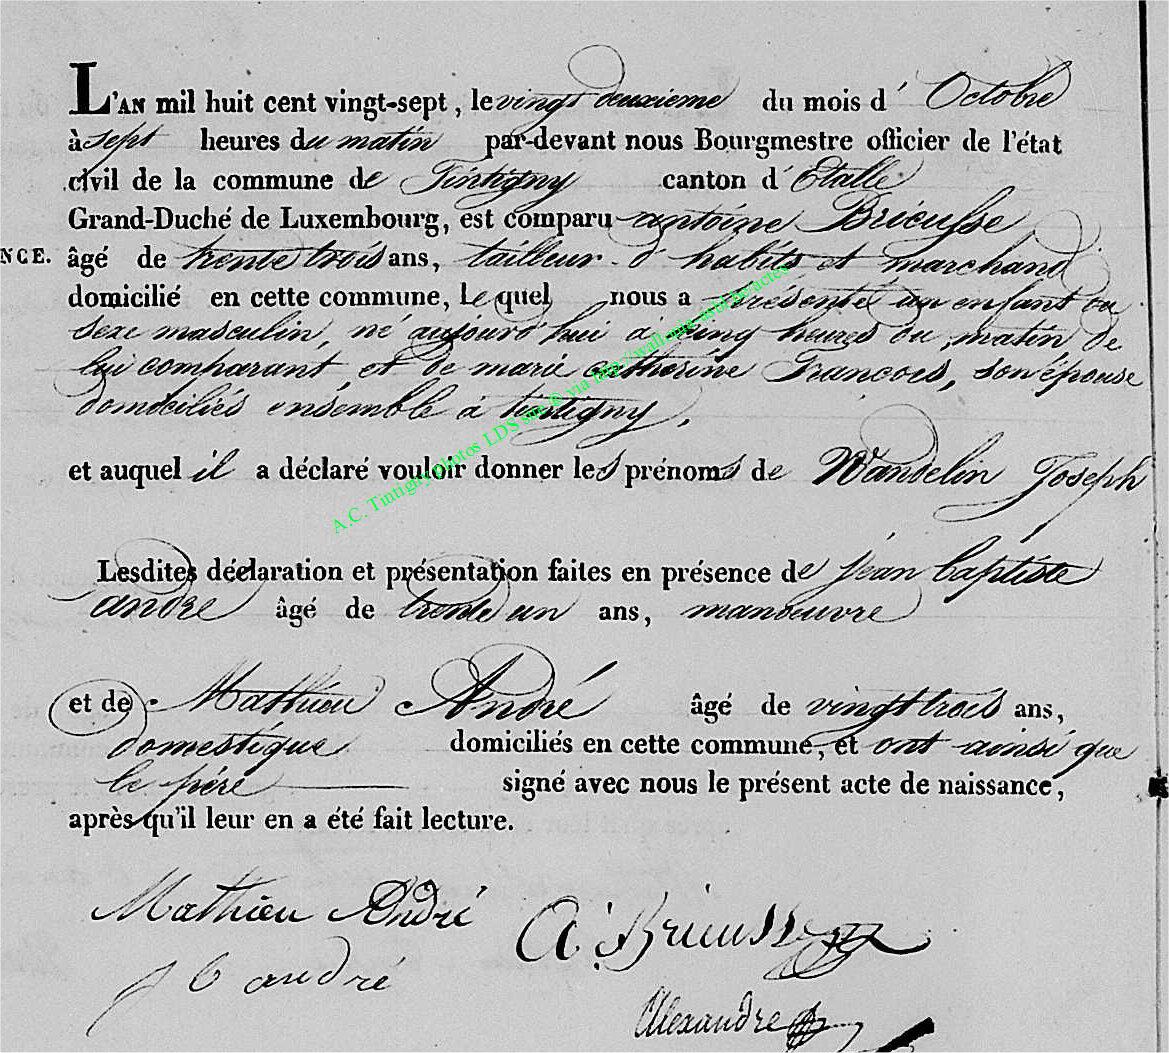 L'AN mil huit cent vingt-sept, le vingt deuxieme du mois d' Octobre
à sept heures du matin par-devant nous Bourgmestre officier de l'état
civil de la commune de Tintigny canton d' Etalle
Grand-Duché de Luxembourg, est comparu antoine Brieusse
NCE. âgé de trente trois ans, tailleur d'habits et marchand
domicilié en cette commune, Lequel nous a présenté un enfant du
sexe masculin, né aujourd'hui à cinq heures du matin de
lui comparant, et de marie catherine Francois, son épouse
domiciliés ensemble à tintigny,
et auquel il a déclaré vouloir donner les prénoms de Wandelin Joseph
A.C. Tintigny photos LDS site & via http://wallonia-asbl.be/actes
Lesdites déclaration et présentation faites en présence de jean baptiste
andré âgé de trente un ans, manoeuvre
et de Mathieu André âgé de vingt trois ans,
domestique domiciliés en cette commune, et ont ainsi que
le père signé avec nous le présent acte de naissance,
après qu'il leur en a été fait lecture.
Mathieu André A: Brieusse
j b andré
Alexandre